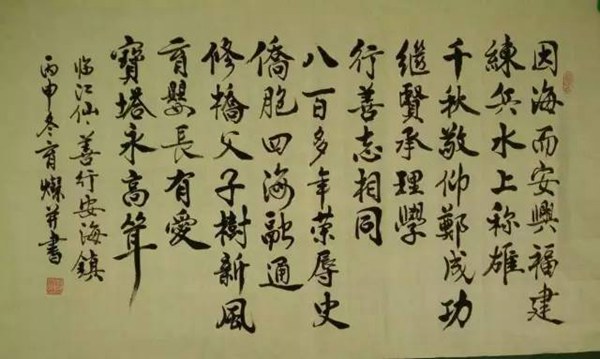 因海而安興福建
練兵水上称雄
千秋敬仰鄭成功
繼賢承理學
行善志相同
八百多年荣辱史
僑胞四海融通
修橋父子樹新風
育嬰長有愛
寶塔永高聳
临江仙、善行安海鎮
丙申冬育燦并書